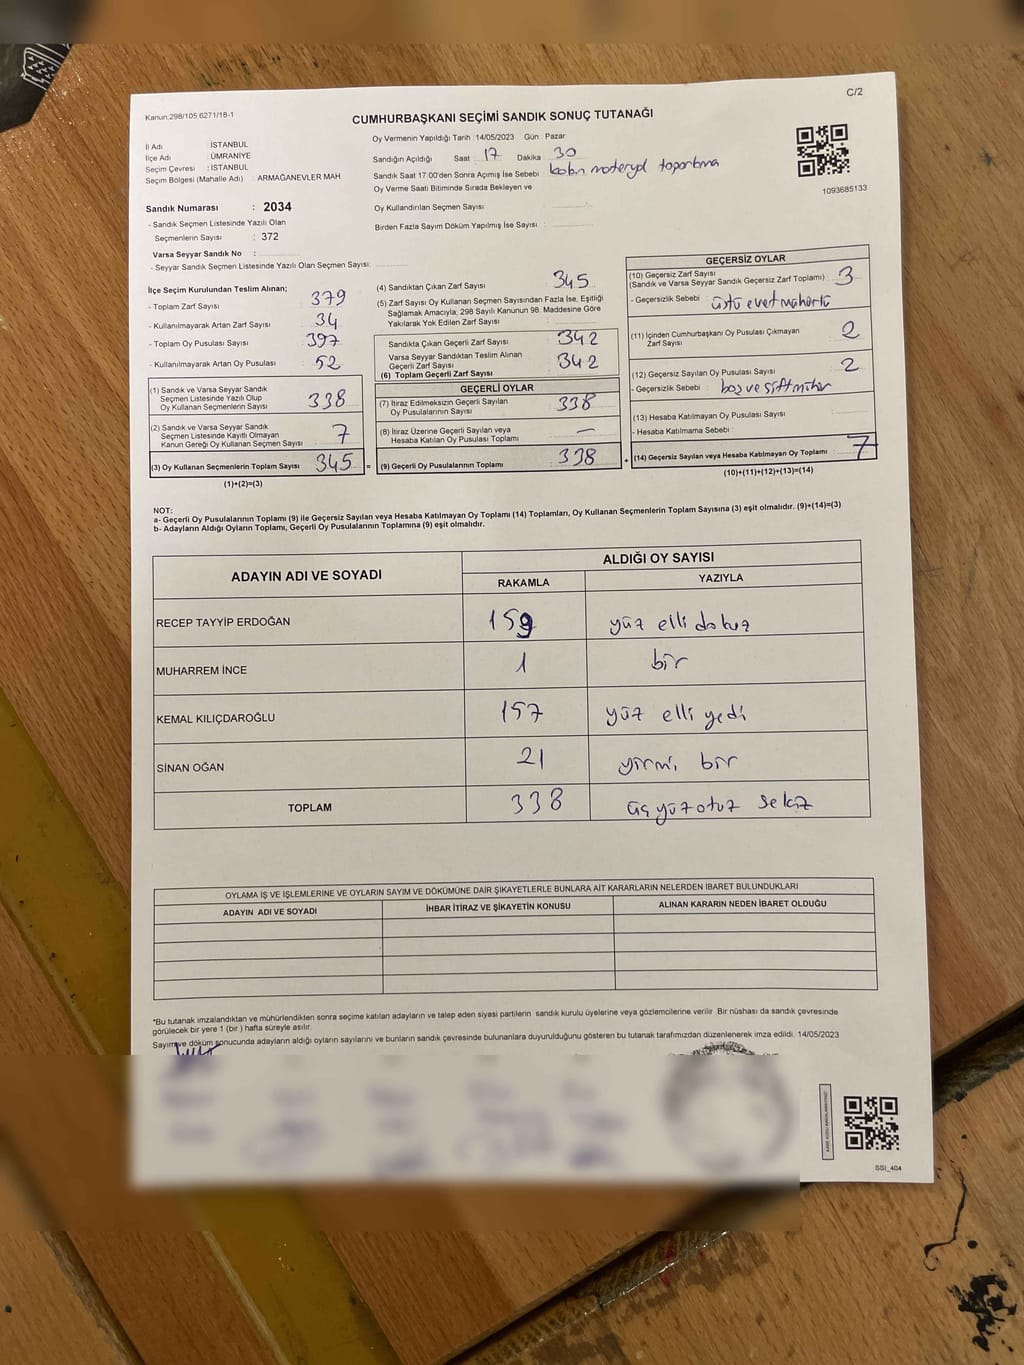 C/2
Kanun:298/105;6271/18-1
CUMHURBAŞKANI SEÇİMİ SANDIK SONUÇ TUTANAĞI
İl Adı : İSTANBUL
İlçe Adı : ÜMRANİYE
Seçim Çevresi : İSTANBUL
Seçim Bölgesi (Mahalle Adı) : ARMAĞANEVLER MAH.
Sandık Numarası : 2034
- Sandık Seçmen Listesinde Yazılı Olan
Seçmenlerin Sayısı : 372
Varsa Seyyar Sandık No :
- Seyyar Sandık Seçmen Listesinde Yazılı Olan Seçmen Sayısı:
Oy Vermenin Yapıldığı Tarih :14/05/2023 Gün : Pazar
Sandığın Açıldığı Saat : 17 Dakika : 30
Sandık Saat 17:00'den Sonra Açımış İse Sebebi : kabin materyal toparlama
Oy Verme Saati Bitiminde Sırada Bekleyen ve
Oy Kullandırılan Seçmen Sayısı :
Birden Fazla Sayım Döküm Yapılmış İse Sayısı :
1093685133
İlçe Seçim Kurulundan Teslim Alınan;
- Toplam Zarf Sayısı : 379
- Kullanılmayarak Artan Zarf Sayısı : 34
- Toplam Oy Pusulası Sayısı : 397
- Kullanılmayarak Artan Oy Pusulası : 52
(1) Sandık ve Varsa Seyyar Sandık
Seçmen Listesinde Yazılı Olup
Oy Kullanan Seçmenlerin Sayısı : 338
(2) Sandık ve Varsa Seyyar Sandık
Seçmen Listesinde Kayıtlı Olmayan
Kanun Gereği Oy Kullanan Seçmen Sayısı : 7
(3) Oy Kullanan Seçmenlerin Toplam Sayısı : 345 =
(1)+(2)=(3)
(4) Sandıktan Çıkan Zarf Sayısı : 345
(5) Zarf Sayısı Oy Kullanan Seçmen Sayısından Fazla İse, Eşitliği
Sağlamak Amacıyla; 298 Sayılı Kanunun 98. Maddesine Göre
Yakılarak Yok Edilen Zarf Sayısı :
Sandıkta Çıkan Geçerli Zarf Sayısı : 342
Varsa Seyyar Sandıktan Teslim Alınan
Geçerli Zarf Sayısı : 342
(6) Toplam Geçerli Zarf Sayısı
GEÇERLİ OYLAR
(7) İtiraz Edilmeksizin Geçerli Sayılan
Oy Pusulalarının Sayısı : 338
(8) İtiraz Üzerine Geçerli Sayılan veya
Hesaba Katılan Oy Pusulası Toplamı : —
(9) Geçerli Oy Pusulalarının Toplamı : 338 +
GEÇERSİZ OYLAR
(10) Geçersiz Zarf Sayısı
(Sandık ve Varsa Seyyar Sandık Geçersiz Zarf Toplamı) : 3
- Geçersizlik Sebebi : üstü evet mühürlü
(11) İçinden Cumhurbaşkanı Oy Pusulası Çıkmayan
Zarf Sayısı : 2
(12) Geçersiz Sayılan Oy Pusulası Sayısı : 2
- Geçersizlik Sebebi : boş ve çift mühür
(13) Hesaba Katılmayan Oy Pusulası Sayısı :
- Hesaba Katılmama Sebebi :
(14) Geçersiz Sayılan veya Hesaba Katılmayan Oy Toplamı : 7
(10)+(11)+(12)+(13)=(14)
NOT:
a- Geçerli Oy Pusulalarının Toplamı (9) ile Geçersiz Sayılan veya Hesaba Katılmayan Oy Toplamı (14) Toplamları, Oy Kullanan Seçmenlerin Toplam Sayısına (3) eşit olmalıdır. (9)+(14)=(3)
b- Adayların Aldığı Oyların Toplamı, Geçerli Oy Pusulalarının Toplamına (9) eşit olmalıdır.
ADAYIN ADI VE SOYADI
ALDIĞI OY SAYISI
RAKAMLA YAZIYLA
RECEP TAYYİP ERDOĞAN 159 yüz elli dokuz
MUHARREM İNCE 1 bir
KEMAL KILIÇDAROĞLU 157 yüz elli yedi
SİNAN OĞAN 21 yirmi bir
TOPLAM 338 üç yüz otuz sekiz
OYLAMA İŞ VE İŞLEMLERİNE VE OYLARIN SAYIM VE DÖKÜMÜNE DAİR ŞİKAYETLERLE BUNLARA AİT KARARLARIN NELERDEN İBARET BULUNDUKLARI
ADAYIN ADI VE SOYADI İHBAR İTİRAZ VE ŞİKAYETİN KONUSU ALINAN KARARIN NEDEN İBARET OLDUĞU
*Bu tutanak imzalandıktan ve mühürlendikten sonra seçime katılan adayların ve talep eden siyasi partilerin sandık kurulu üyelerine veya gözlemcilerine verilir. Bir nüshası da sandık çevresinde
görülecek bir yere 1 (bir ) hafta süreyle asılır.
Sayım ve döküm sonucunda adayların aldığı oyların sayılarını ve bunların sandık çevresinde bulunanlara duyurulduğunu gösteren bu tutanak tarafımızdan düzenlenerek imza edildi. 14/05/2023
SSI_404